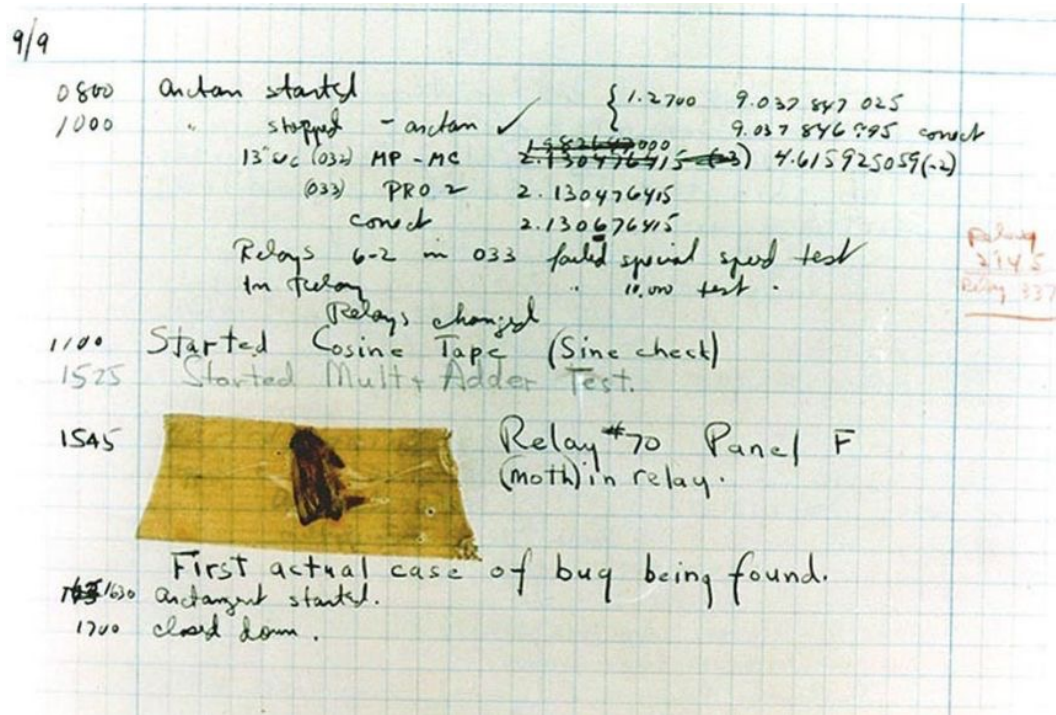 9/9
0800 arctan started { 1.2700 9.037 847 025
1000 " stopped - arctan ✓ 9.037 846 795 correct
13" sec (032) MP - MC 2.130476415 4.615925059(-2)
(033) PRO 2 2.130476415
correct 2.130676415
Relays 6-2 in 033 failed special speed test
In Relay " 10,000 test .
Relays changed
Relay
2145
Relay 337
1100 Started Cosine Tape (Sine check)
1525 Started Mult + Adder Test.
1545 Relay #70 Panel F
(moth) in relay.
First actual case of bug being found.
1630 arctangent started.
1700 closed down.